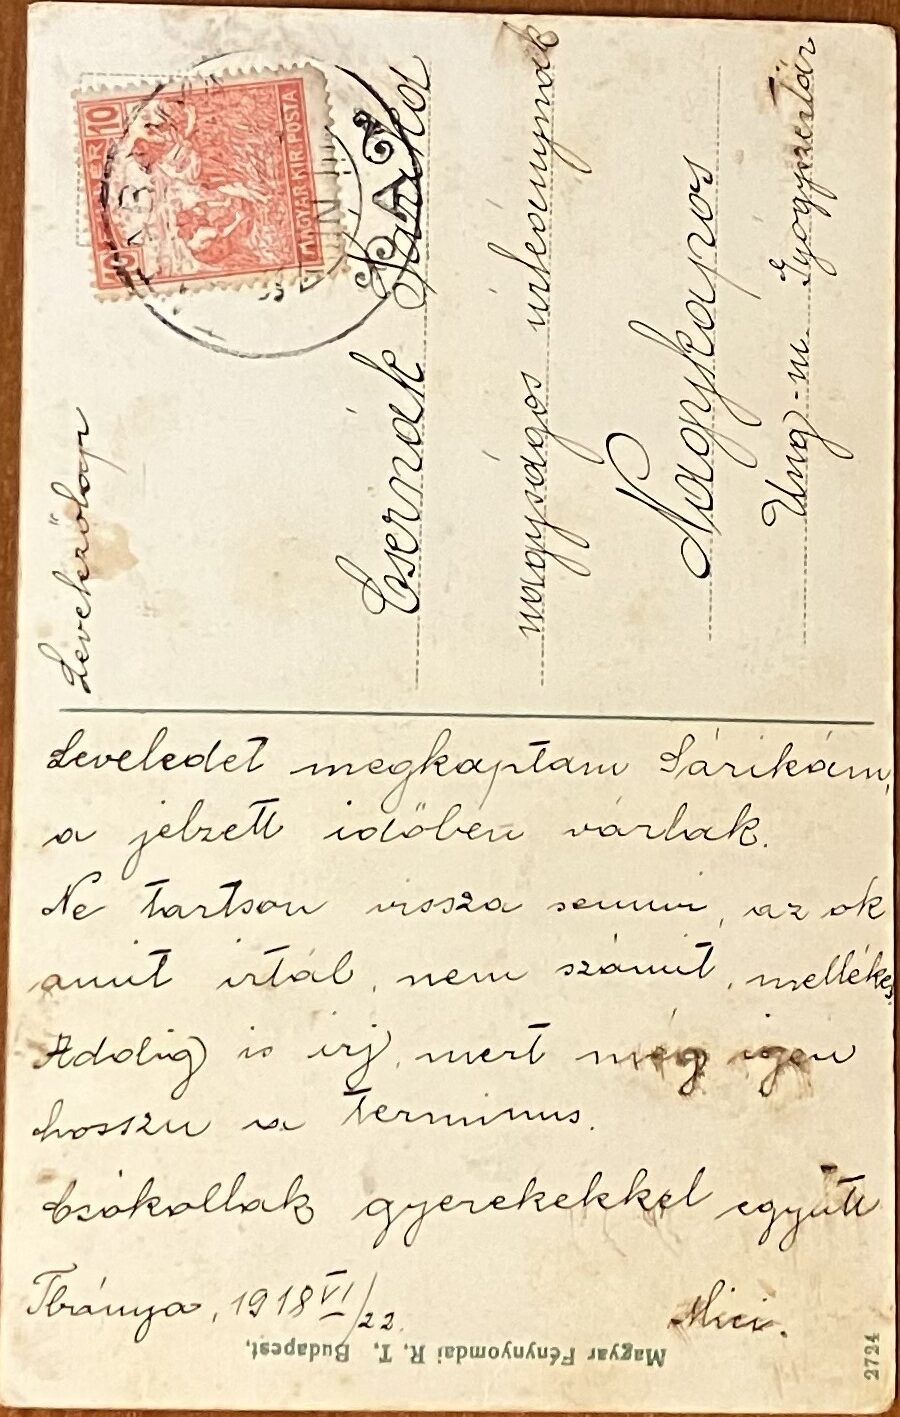 Levelezőlap
10
10
MAGYAR KIR. POSTA
Csernák Sárika
nagyságos úrleánynak
Nagykapos
Ung-m. Gyógyszertár
Leveledet megkaptam Sárikám,
a jelzett időben várlak.
Ne tartson vissza semmi, az ok
amit irtál, nem számit, mellékes.
Addig is irj, mert még igen
hosszu a terminus.
Csókollak gyerekekkel együtt
Ibránya, 1918 VI/22.
Mici.
Magyar Fénynyomdai R. T. Budapest.
2724